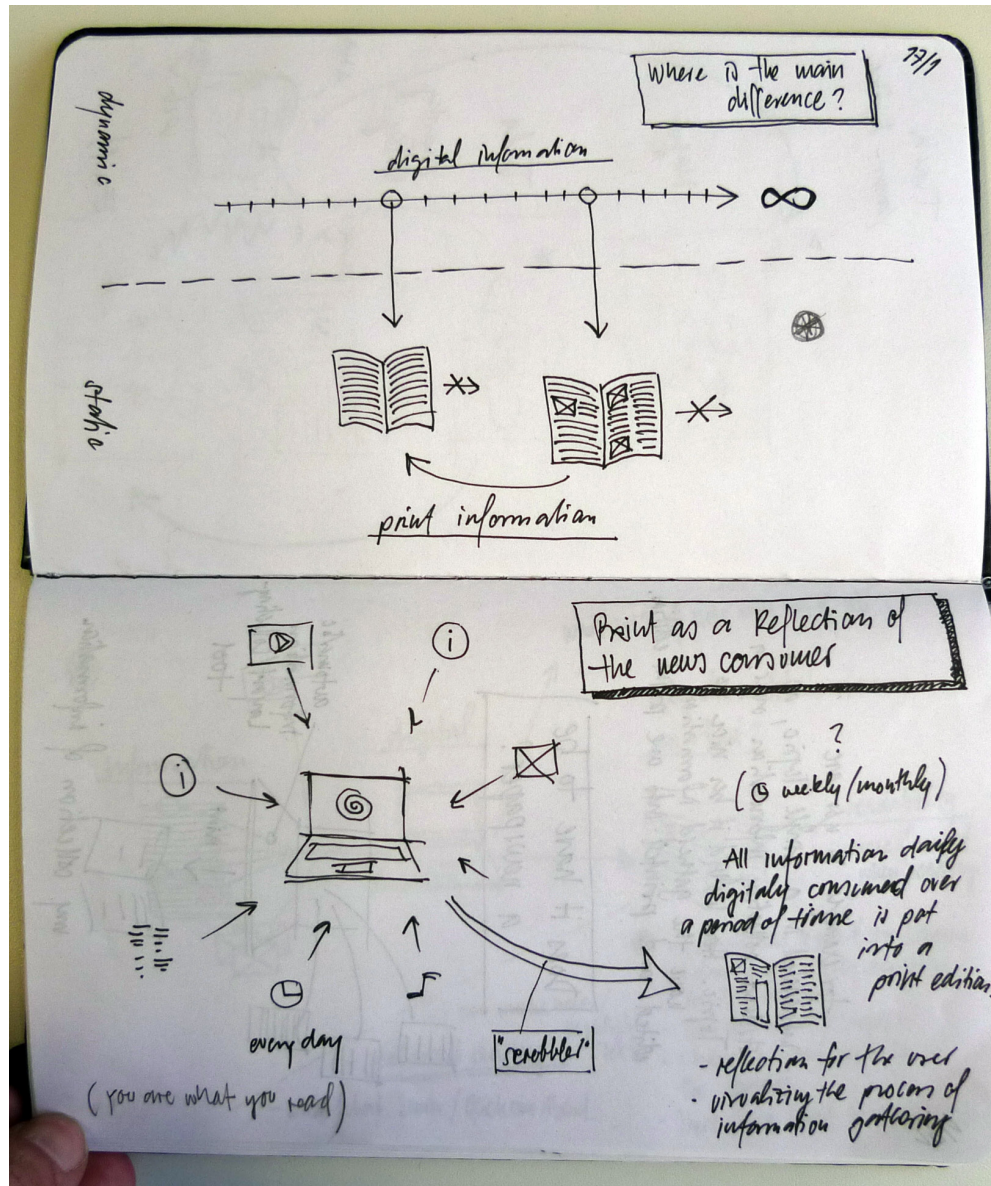 17/1
Where is the main
difference?
dynamic
digital information
∞
static
print information
Print as a Reflection of
the news consumer
i
i
?
(weekly/monthly)
All information daily
digitaly consumed over
a period of time is put
into a
print edition
every day
"scrobbler"
(you are what you read)
- reflection for the user
- visualizing the process of
information gathering